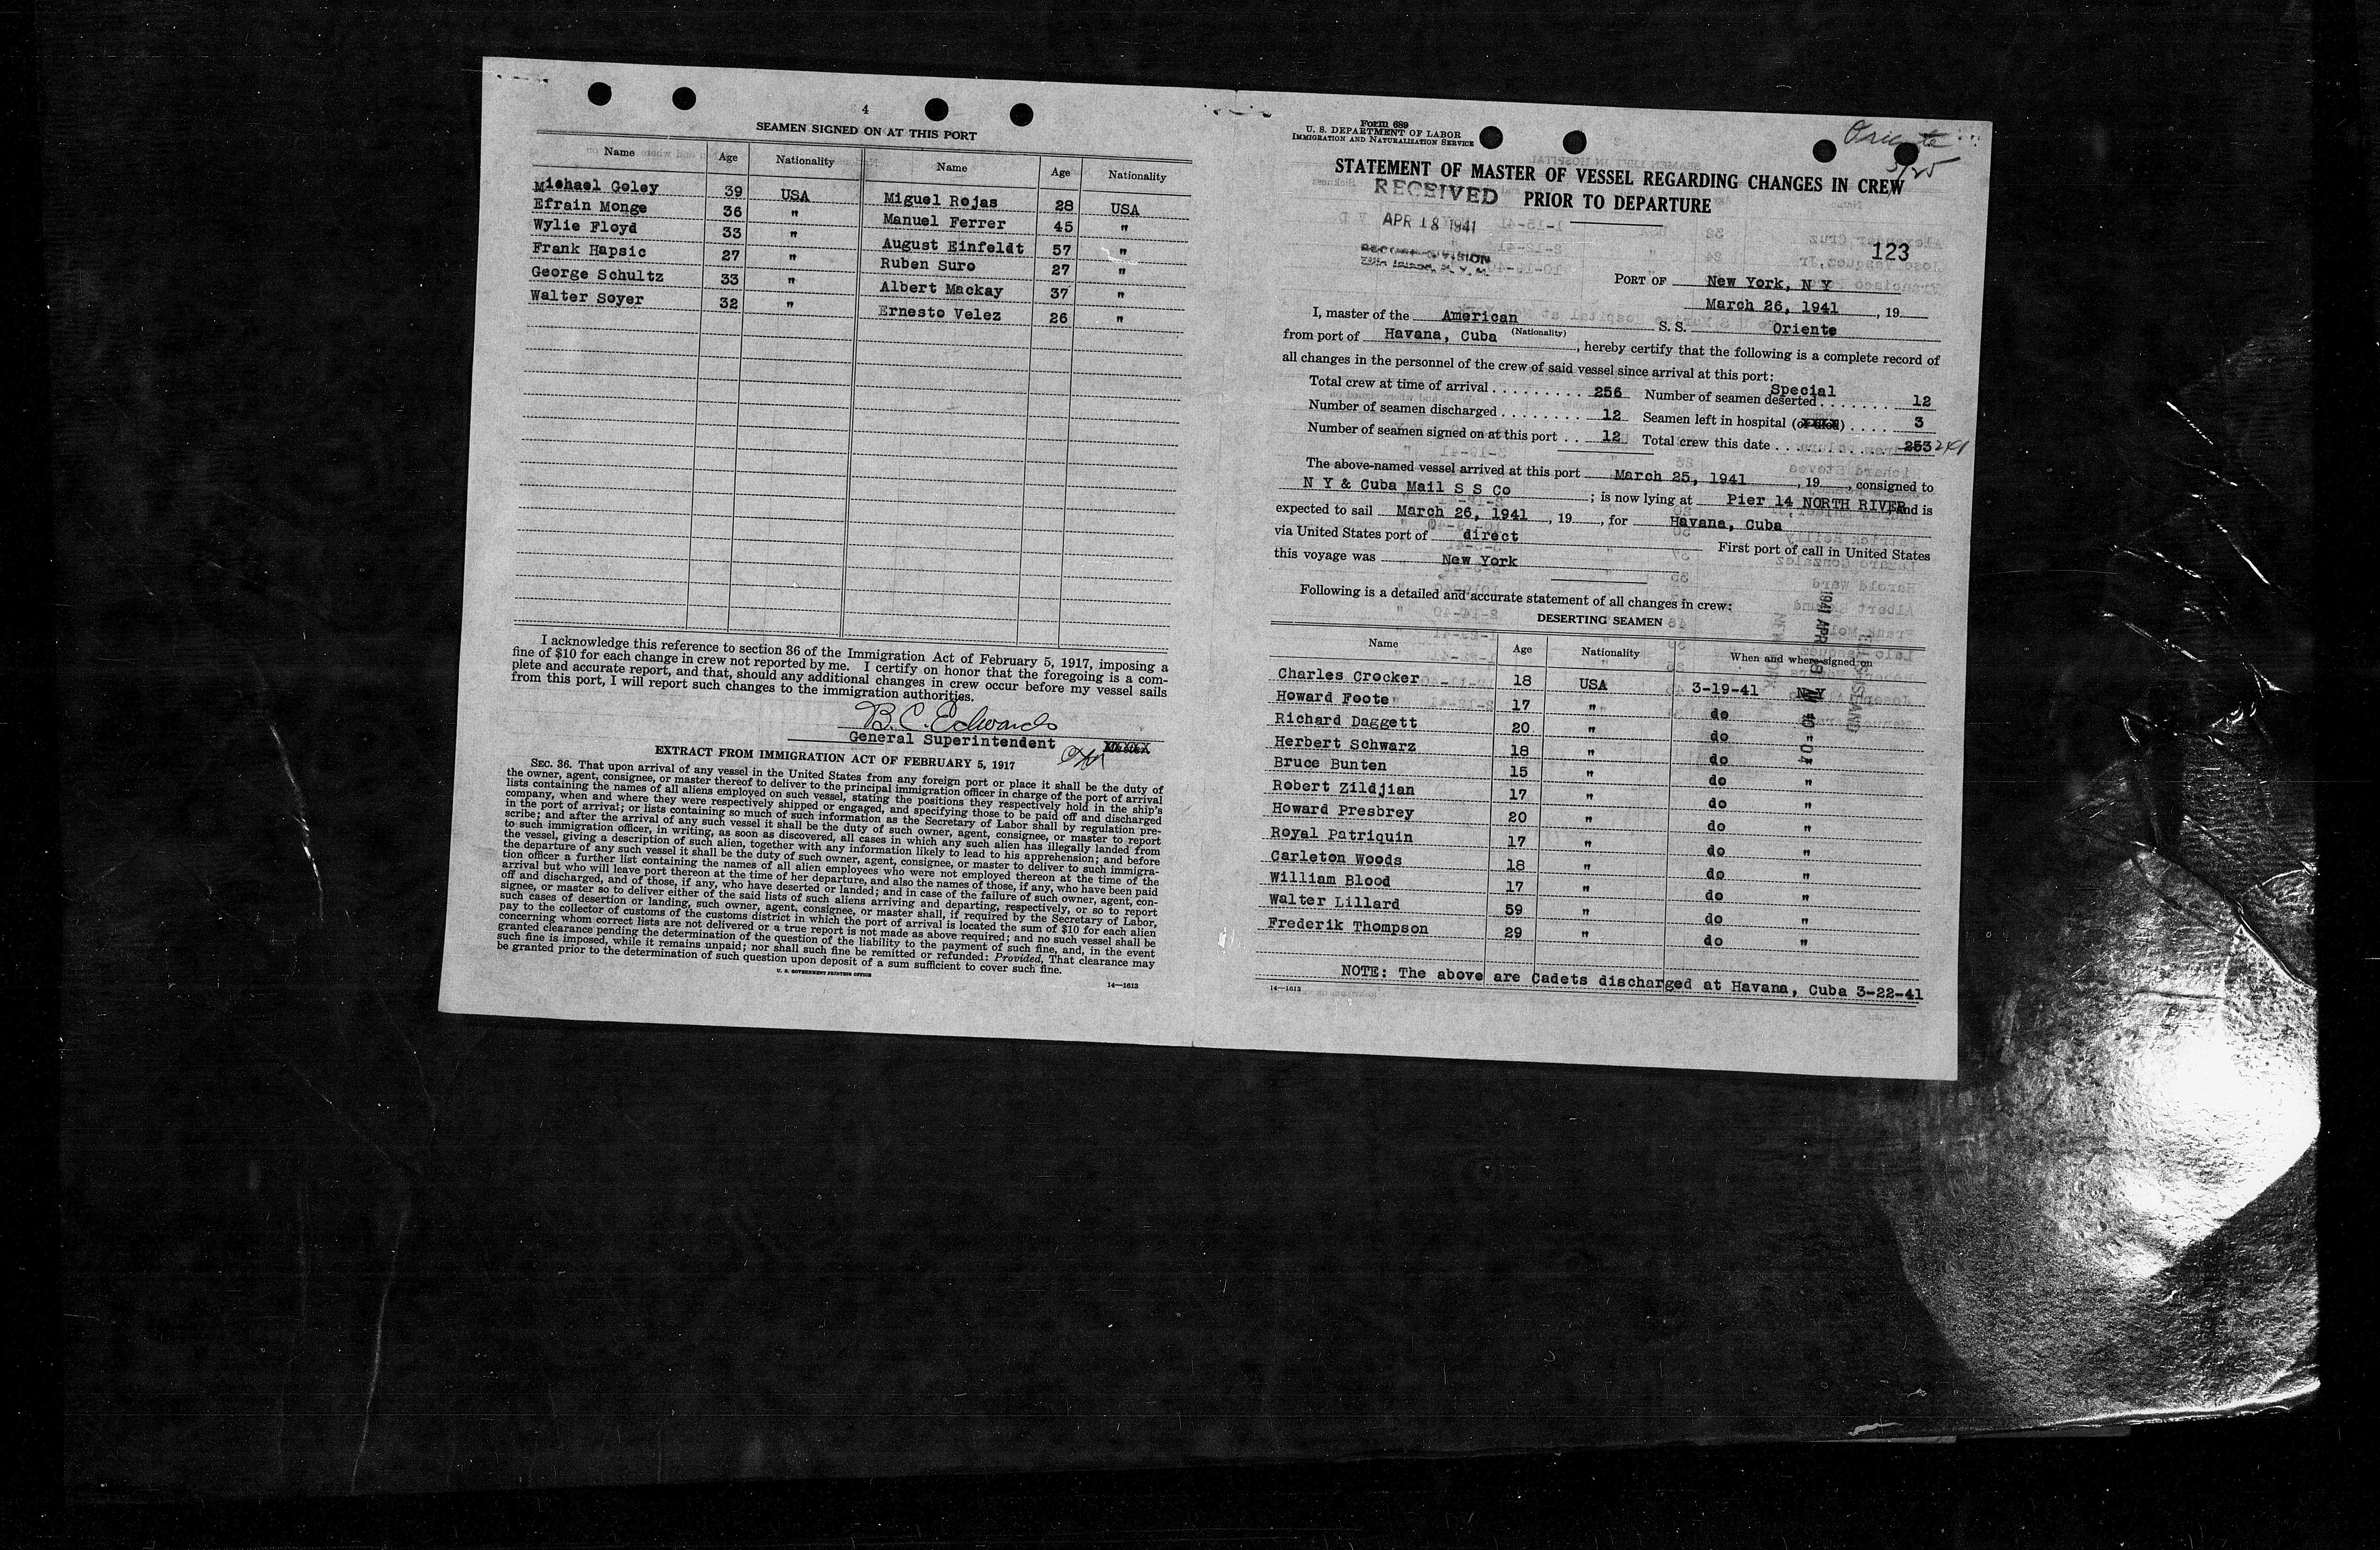 4
SEAMEN SIGNED ON AT THIS PORT
Name Age Nationality Name Age Nationality
Michael Goley 39 USA Miguel Rojas 28 USA
Efrain Monge 36 " Manuel Ferrer 45 "
Wylie Floyd 33 " August Einfeldt 57 "
Frank Hapsic 27 " Ruben Suro 27 "
George Schultz 33 " Albert Mackay 37 "
Walter Soyer 32 " Ernesto Velez 26 "
I acknowledge this reference to section 36 of the Immigration Act of February 5, 1917, imposing a
fine of $10 for each change in crew not reported by me. I certify on honor that the foregoing is a com-
plete and accurate report, and that, should any additional changes in crew occur before my vessel sails
from this port, I will report such changes to the immigration authorities.
B. C. Edwards
General Superintendent
EXTRACT FROM IMMIGRATION ACT OF FEBRUARY 5, 1917
SEC. 36. That upon arrival of any vessel in the United States from any foreign port or place it shall be the duty of
the owner, agent, consignee, or master thereof to deliver to the principal immigration officer in charge of the port of arrival
lists containing the names of all aliens employed on such vessel, stating the positions they respectively hold in the ship's
company, when and where they were respectively shipped or engaged, and specifying those to be paid off and discharged
in the port of arrival; or lists containing so much of such information as the Secretary of Labor shall by regulation pre-
scribe; and after the arrival of any such vessel it shall be the duty of such owner, agent, consignee, or master to report
to such immigration officer, in writing, as soon as discovered, all cases in which any such alien has illegally landed from
the vessel, giving a description of such alien, together with any information likely to lead to his apprehension; and before
the departure of any such vessel it shall be the duty of such owner, agent, consignee, or master to deliver to such immigra-
tion officer a further list containing the names of all alien employees who were not employed thereon at the time of the
arrival but who will leave port thereon at the time of her departure, and also the names of those, if any, who have been paid
off and discharged, and of those, if any, who have deserted or landed; and in case of the failure of such owner, agent, con-
signee, or master so to deliver either of the said lists of such aliens arriving and departing, respectively, or so to report
such cases of desertion or landing, such owner, agent, consignee, or master shall, if required by the Secretary of Labor,
pay to the collector of customs of the customs district in which the port of arrival is located the sum of $10 for each alien
concerning whom correct lists are not delivered or a true report is not made as above required; and no such vessel shall be
granted clearance pending the determination of the question of the liability to the payment of such fine, and, in the event
such fine is imposed, while it remains unpaid; nor shall such fine be remitted or refunded: Provided, That clearance may
be granted prior to the determination of such question upon deposit of a sum sufficient to cover such fine.
U. S. GOVERNMENT PRINTING OFFICE
14—1613
Form 689
U. S. DEPARTMENT OF LABOR
IMMIGRATION AND NATURALIZATION SERVICE
Oriente
3/25
STATEMENT OF MASTER OF VESSEL REGARDING CHANGES IN CREW
PRIOR TO DEPARTURE
RECEIVED
APR 18 1941
RECORD DIVISION
123
PORT OF New York, N Y
March 26, 1941, 19
I, master of the American S. S. Oriente
(Nationality)
from port of Havana, Cuba, hereby certify that the following is a complete record of
all changes in the personnel of the crew of said vessel since arrival at this port:
Special
Total crew at time of arrival 256 Number of seamen deserted 12
Number of seamen discharged 12 Seamen left in hospital (or died) 3
Number of seamen signed on at this port 12 Total crew this date 253 241
The above-named vessel arrived at this port March 25, 1941, 19, consigned to
N Y & Cuba Mail S S Co; is now lying at Pier 14 NORTH RIVER, and is
expected to sail March 26, 1941, 19, for Havana, Cuba
via United States port of direct First port of call in United States
this voyage was New York
Following is a detailed and accurate statement of all changes in crew:
DESERTING SEAMEN
Name Age Nationality When and where signed on
Charles Crocker 18 USA 3-19-41 N Y
Howard Foote 17 " do "
Richard Daggett 20 " do "
Herbert Schwarz 18 " do "
Bruce Bunten 15 " do "
Robert Zildjian 17 " do "
Howard Presbrey 20 " do "
Royal Patriquin 17 " do "
Carleton Woods 18 " do "
William Blood 17 " do "
Walter Lillard 59 " do "
Frederik Thompson 29 " do "
NOTE: The above are Cadets discharged at Havana, Cuba 3-22-41
14—1613